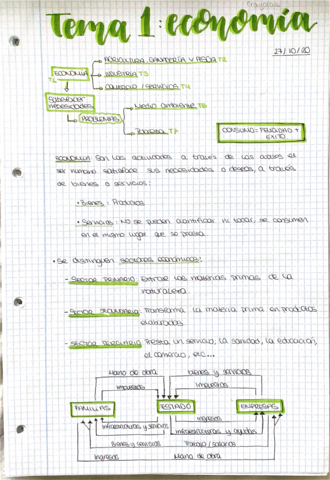 Tema 1: economía
27/10/20
AGRICULTURA, GANADERÍA Y PESCA T2
ECONOMÍA
T1
INDUSTRIA T3
COMERCIO / SERVICIOS T4
SATISFACER NECESIDADES
PROBLEMAS
MEDIO AMBIENTE T6
Pobreza T7
CONSUMO: FELICIDAD + ÉXITO
ECONOMÍA: Son las actividades a través de las cuales el
ser humano satisface sus necesidades o deseos, a través
de bienes o servicios:
• Bienes: Productos
• Servicios: No se pueden cuantificar ni tocar, se consumen
en el mismo lugar que se presta.
• Se distinguen sectores económicos:
- SECTOR PRIMARIO: Extrae las materias primas de la
naturaleza.
- SECTOR SECUNDARIO: Transforma la materia prima en productos
elaborados.
- SECTOR TERCIARIO: Presta un servicio, la sanidad, la educación,
el comercio, etc...
Mano de obra
bienes y servicios
Impuestos
Impuestos
FAMILIAS
ESTADO
EMPRESAS
Ingresos
Infraestructuras y servicios
Infraestructuras y ayudas
Bienes y servicios
Trabajo / Salarios
Ingresos
Mano de obra